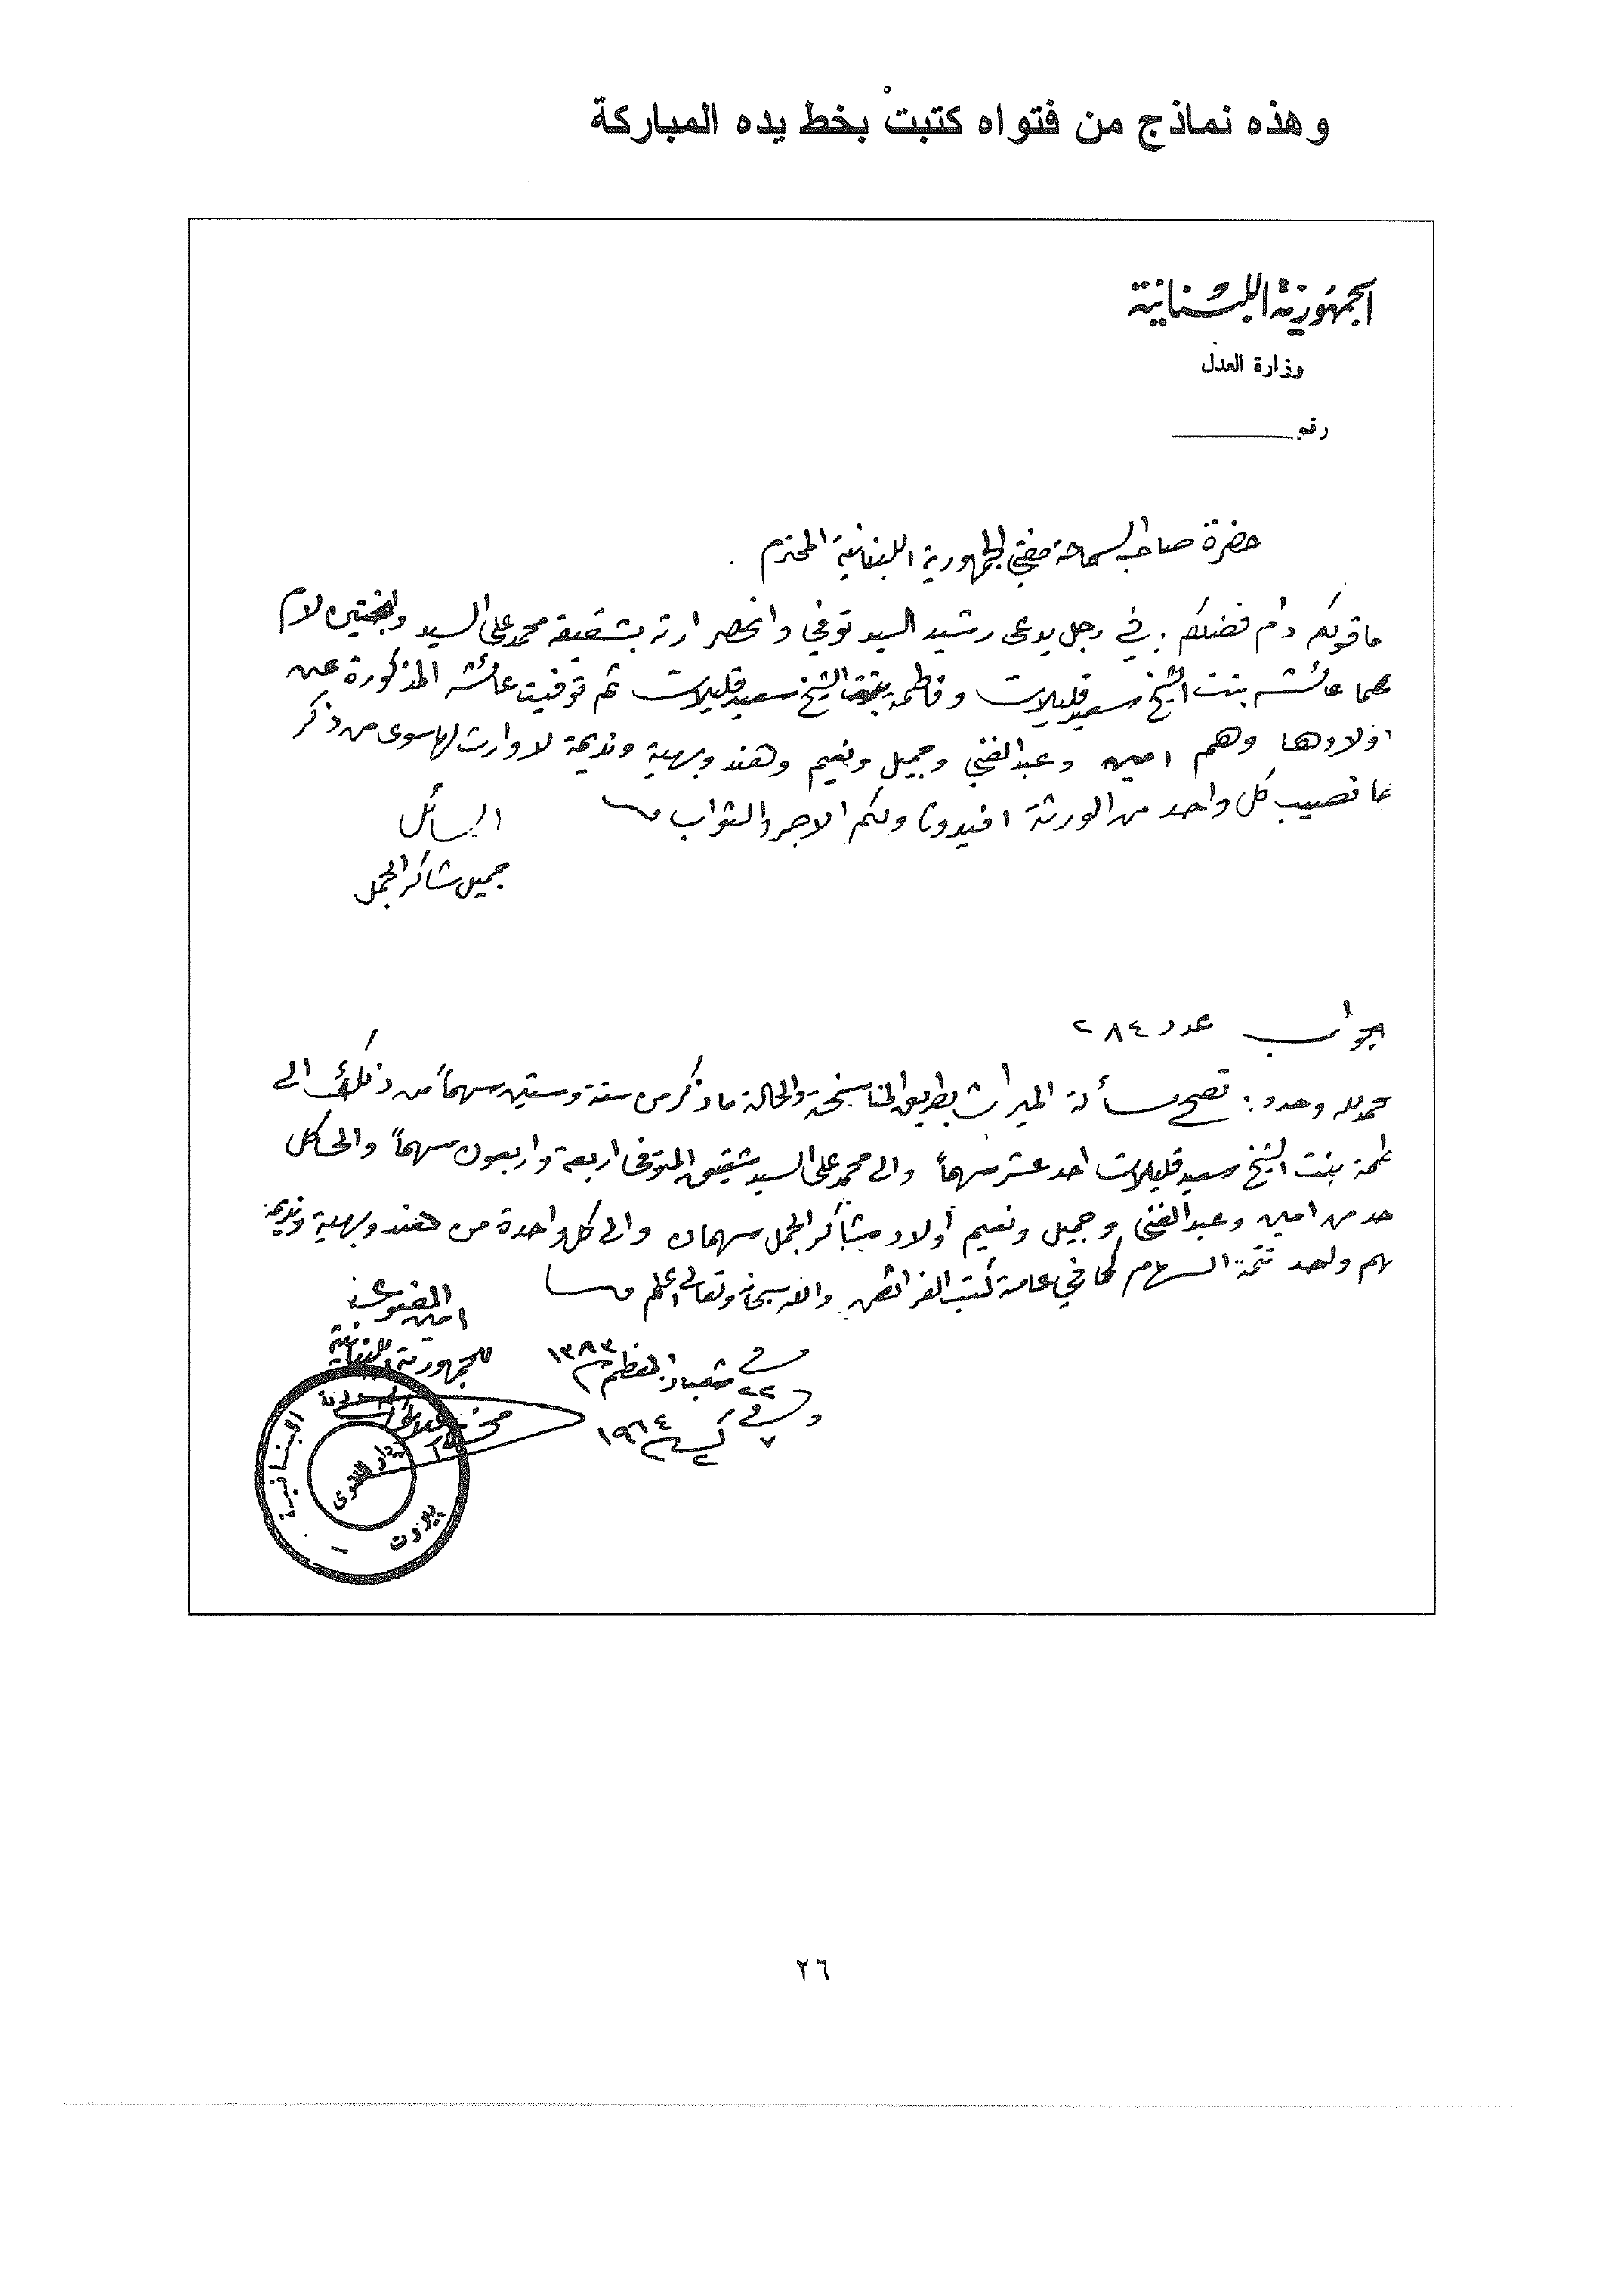 وهذه نماذج من فتواه كتبتْ بخط يده المباركة
الجمهورية اللبنانية
وزارة العدل
رقم
حضرة صاحب السماحة مفتي الجمهورية اللبنانية المحترم .
ما قولكم دام فضلكم : في رجل يدعى رشيد السيد توفي وانحصر ارثه بشقيقه محمد علي السيد ولاختين لام
هما عائشه بنت الشيخ سعيد قليلات وفاطمة بنت الشيخ سعيد قليلات ثم توفيت عائشه المذكورة عن
اولادها وهم امين وعبد الغني وجميل ونعيم وهند وبهية ونديمة لا وارث لها سوى من ذكر
ما نصيب كل واحد من الورثة افيدونا ولكم الاجر والثواب
السائل
جميل شاكر الجمل
الجواب عدد ٢٨٤
حمد لله وحده : تصح مسألة الميراث بطريق المناسخة والحالة ما ذكر من ستة وستين سهماً من ذلك الى
طمة بنت الشيخ سعيد قليلات احد عشر سهماً والى محمد علي السيد شقيق المتوفى اربعة واربعون سهماً والى كل
حد من امين وعبد الغني وجميل ونعيم أولاد شاكر الجمل سهمان والى كل واحدة من هند وبهية ونديمة
هم واحد تتمة السهام كما في عامة كتب الفرائض والله سبحانه وتعالى أعلم
امين الفتوى
للجمهورية اللبنانية
مختار العلايلي
في ٢٢ شعبان المعظم ١٣٨٣
وفي ٧ ك٢ ١٩٦٤
اللبنانية
دار الفتوى
بيروت
٢٦